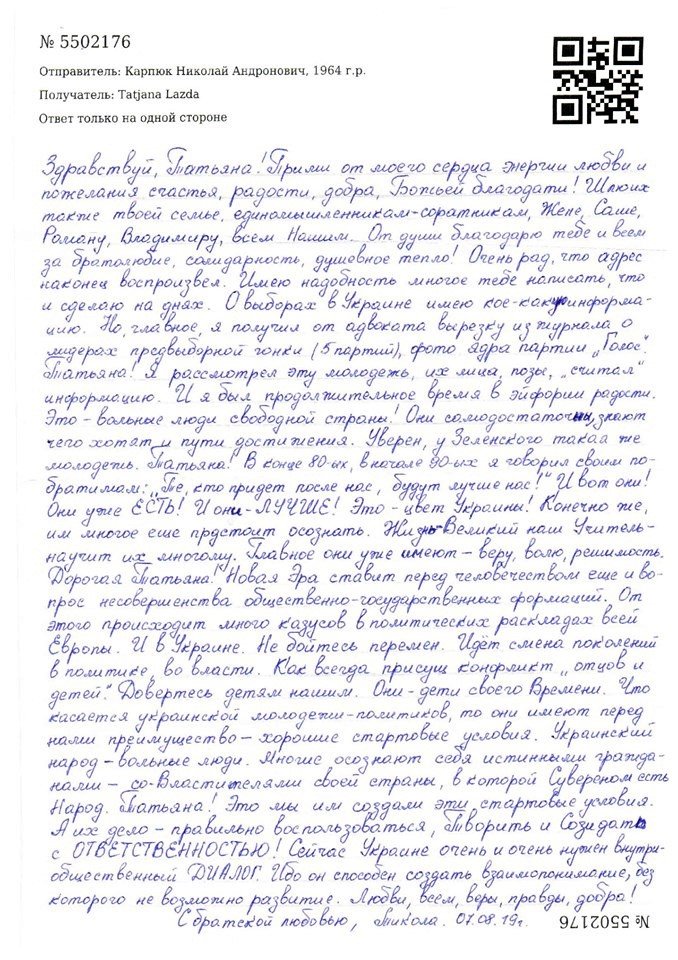 № 5502176
Отправитель: Карпюк Николай Андронович, 1964 г.р.
Получатель: Tatjana Lazda
Ответ только на одной стороне
Здравствуй, Татьяна! Прими от моего сердца энергии любви и
пожелания счастья, радости, добра, Божьей благодати! Шлю их
также твоей семье, единомышленникам-соратникам, Жене, Саше,
Роману, Владимиру, всем Нашим. От души благодарю тебе и всем
за братолюбие, солидарность, душевное тепло! Очень рад, что адрес
наконец воспроизвел. Имею надобность многое тебе написать, что
и сделаю на днях. О выборах в Украине имею кое-какую информа-
цию. Но, главное, я получил от адвоката вырезку из журнала о
лидерах предвыборной гонки (5 партий), фото ядра партии „Голос“.
Татьяна! Я рассмотрел эту молодежь, их лица, позы, „считал“
информацию. И я был продолжительное время в эйфории радости.
Это – вольные люди свободной страны! Они самодостаточны, знают
чего хотят и пути достижения. Уверен, у Зеленского такая же
молодежь. Татьяна! В конце 80-ых, в начале 90-ых я говорил своим по-
братимам: „Те, кто придет после нас, будут лучше нас!“ И вот они!
Они уже ЕСТЬ! И они – ЛУЧШЕ! Это – цвет Украины! Конечно же,
им многое еще прдстоит осознать. Жизнь – Великий наш Учитель –
научит их многому. Главное они уже имеют – веру, волю, решимость.
Дорогая Татьяна! Новая Эра ставит перед человечеством еще и во-
прос несовершенства общественно-государственных формаций. От
этого происходит много казусов в политических раскладах всей
Европы. И в Украине. Не бойтесь перемен. Идёт смена поколений
в политике, во власти. Как всегда присущ конфликт „отцов и
детей“. Довертесь детям нашим. Они – дети своего Времени. Что
касается украинской молодежи-политиков, то они имеют перед
нами преимущество – хорошие стартовые условия. Украинский
народ – вольные люди. Многие осознают себя истинными гражда-
нами – со-Властителями своей страны, в которой Сувереном есть
Народ. Татьяна! Это мы им создали эти стартовые условия.
А их дело – правильно воспользоваться, Творить и Созидать
с ОТВЕТСТВЕННОСТЬЮ! Сейчас Украине очень и очень нужен внутри-
общественный ДИАЛОГ. Ибо он способен создать взаимопонимание, без
которого не возможно развитие. Любви, всем, веры, правды, добра!
С братской любовью, Микола. 07.08.19г.
№ 5502176